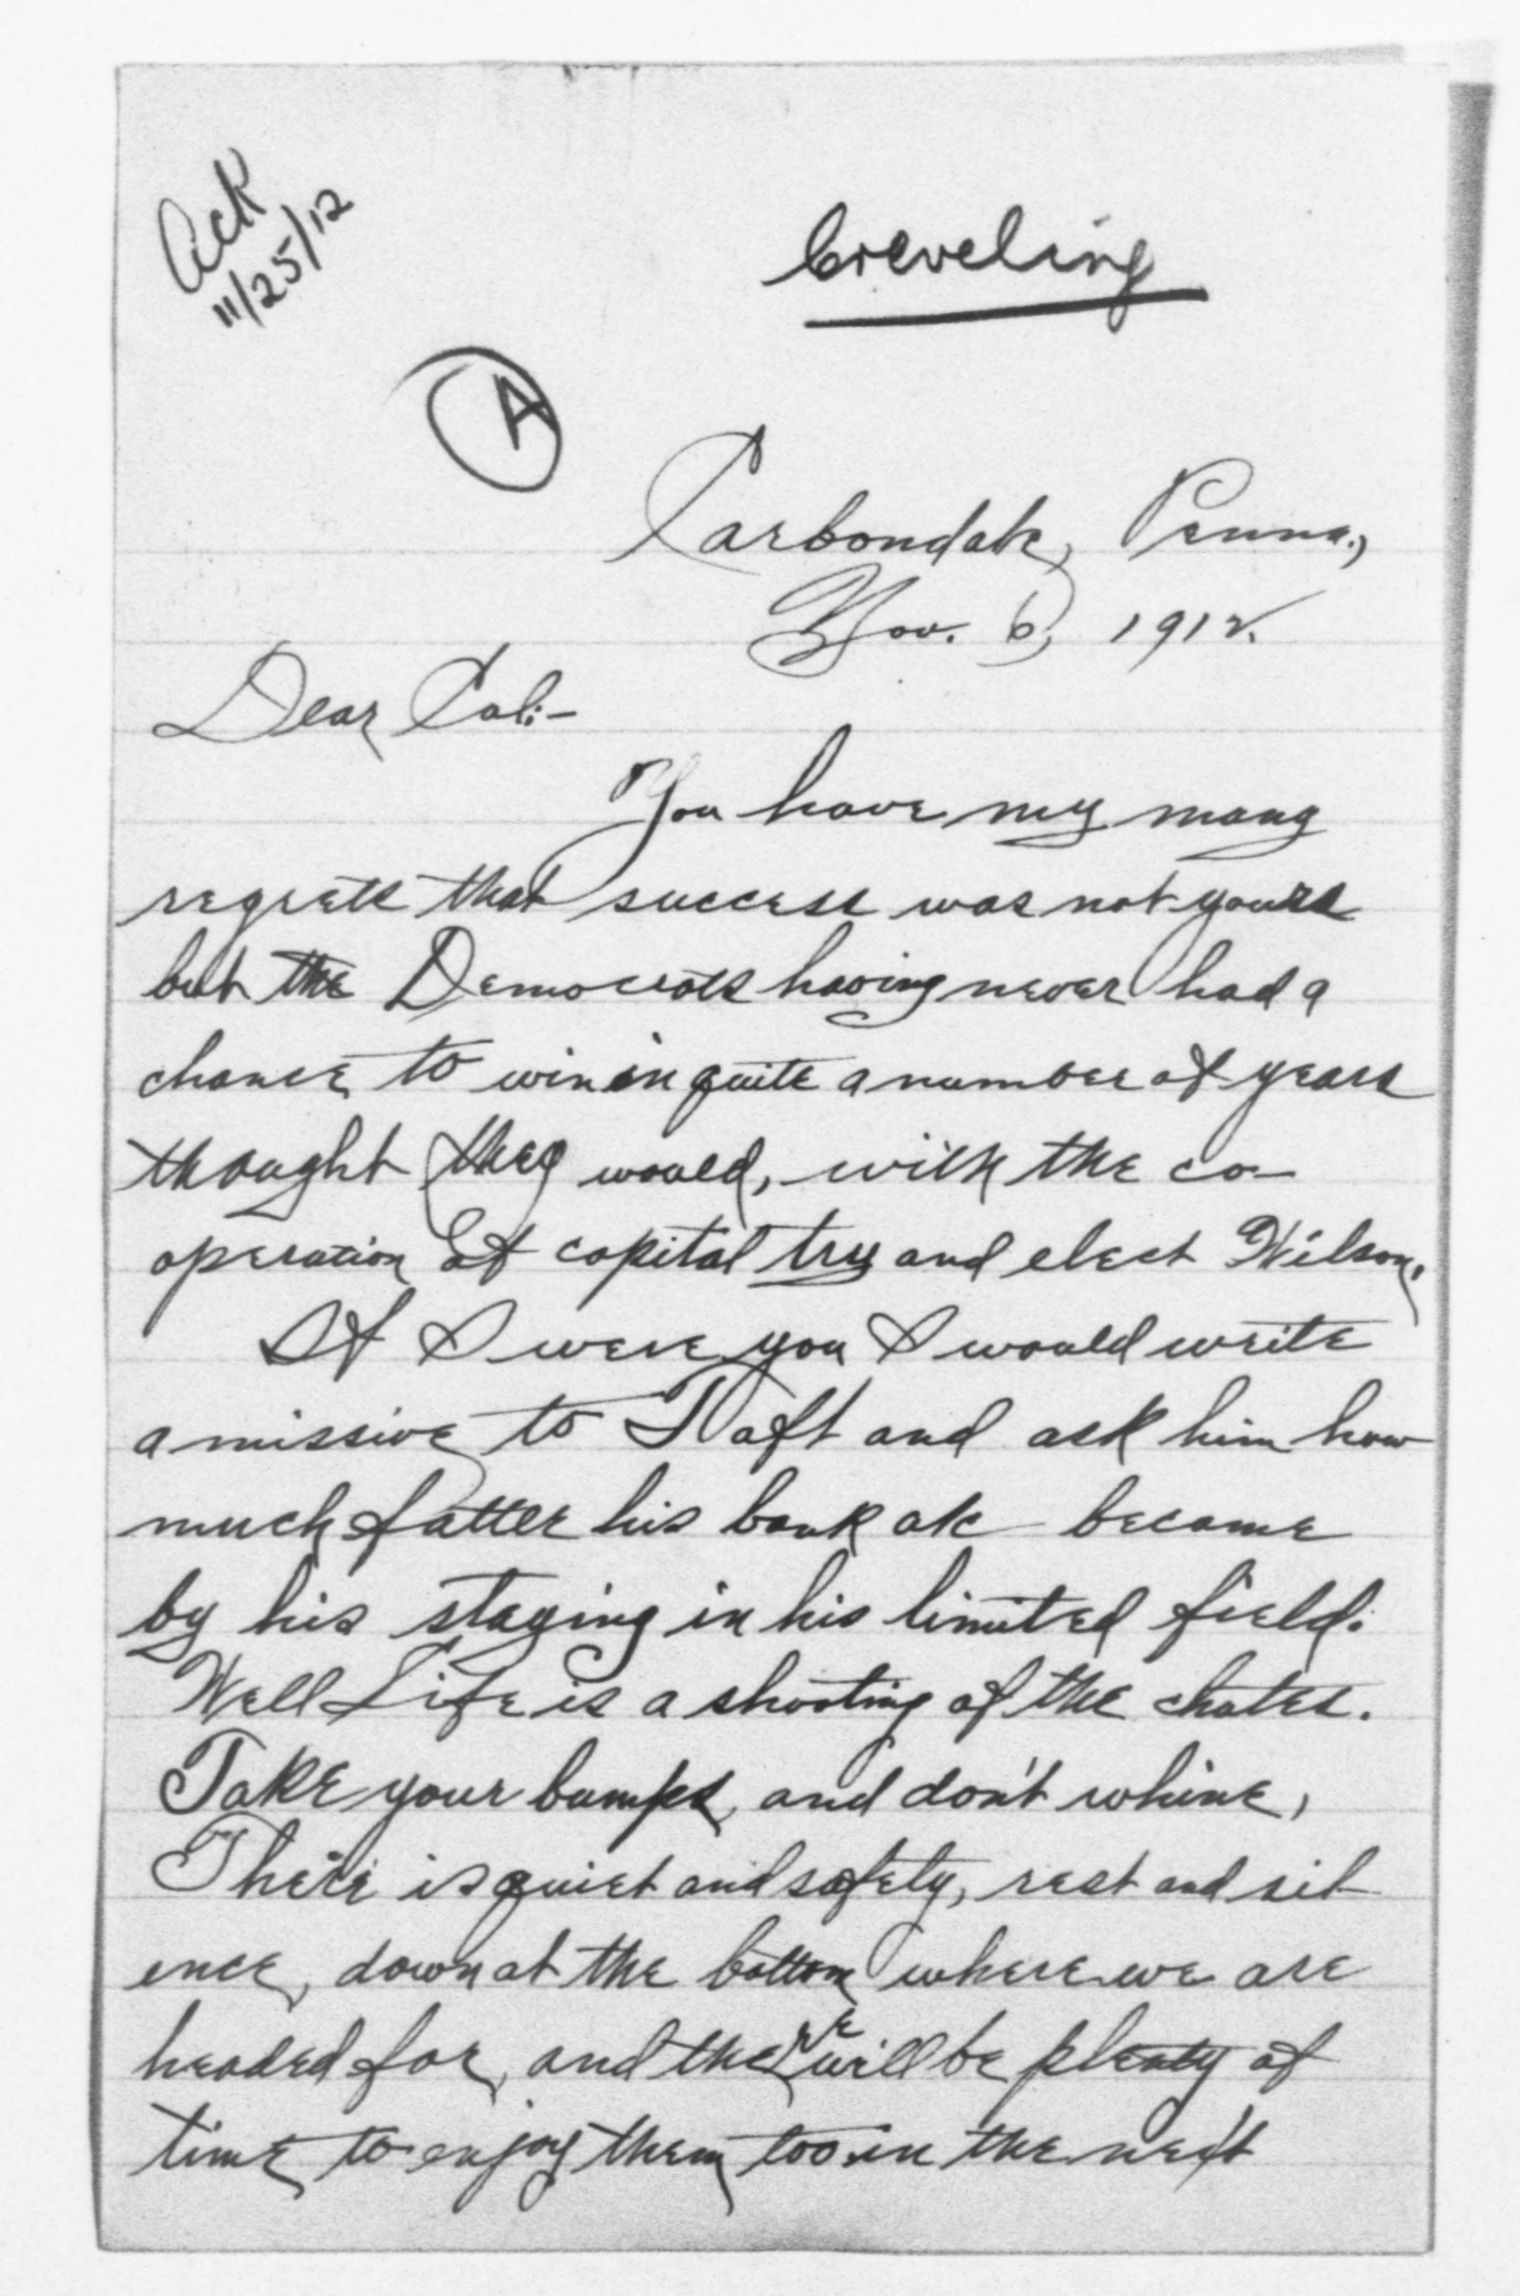 Ack
11/25/12
Creveling
A
Carbondale, Penna.,
Nov. 6, 1912.
Dear Col:-
You have my many
regrets that success was not yours
but the Democrats having never had a
chance to win in quite a number of years
thought they would, with the co-
operation of capital try and elect Wilson.
If I were you I would write
a missive to Taft and ask him how
much fatter his bank a/c became
by his staying in his limited field.
Well Life is a shooting of the chutes.
Take your bumps, and don't whine,
There is quiet and safety, rest and sil
ence, down at the bottom where we are
headed for, and there will be plenty of
time to enjoy them too in the next